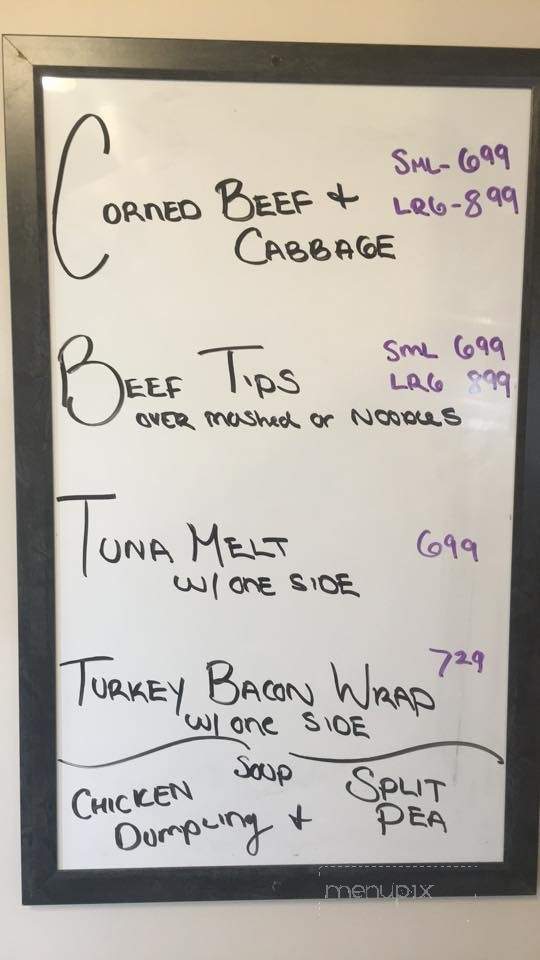 CORNED BEEF + SML- 699
LRG - 899
CABBAGE
BEEF TIPS SML 699
LRG 899
OVER mashed or NOODLES
TUNA MELT 699
W/ ONE SIDE
TURKEY BACON WRAP 729
W/ one SIDE
SOUP
CHICKEN Dumpling + SPLIT PEA
menupix